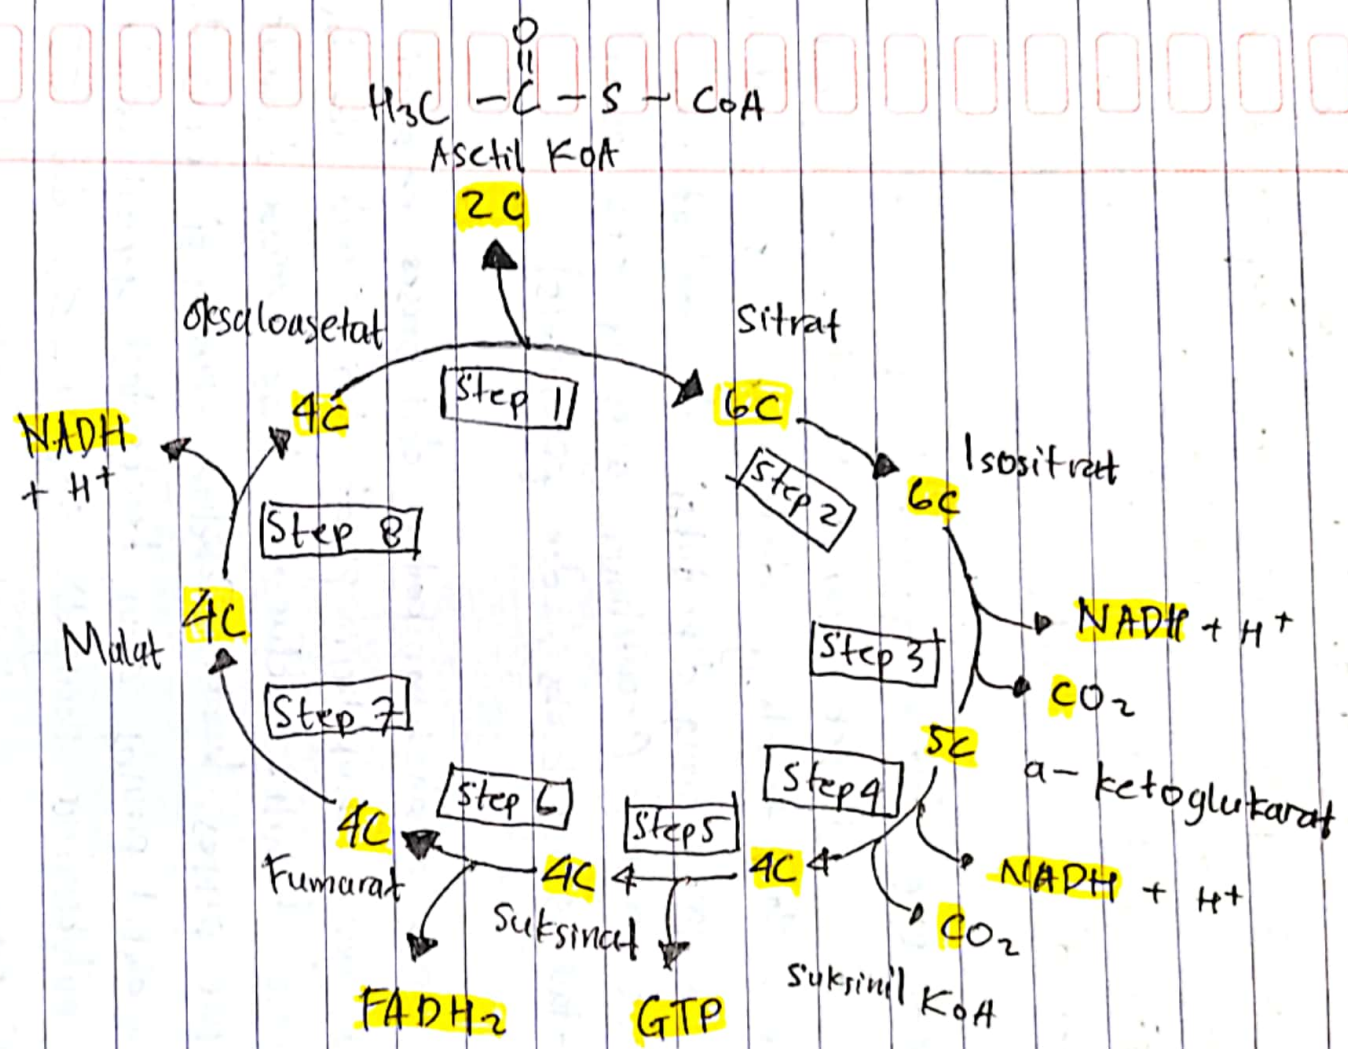 O
||
H3C - C - S - CoA
Asetil KoA
2C
Oksaloasetat
Sitrat
4C
Step 1
6C
NADH
+ H+
Step 2
Isositrat
6C
Step 8
4C
Malat
NADH + H+
Step 3
CO2
Step 7
5C
a- ketoglukarat
Step 4
Step 6
Step 5
4C
Fumarat
4C
Suksinat
4C
NADH + H+
CO2
Suksinil KoA
FADH2
GTP